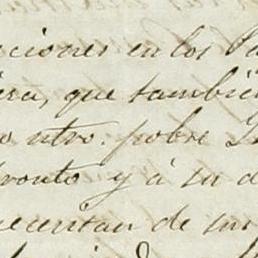 ciones en los
era, que tambié
o ntro. pobre
pronto y á su d
cuentan de su